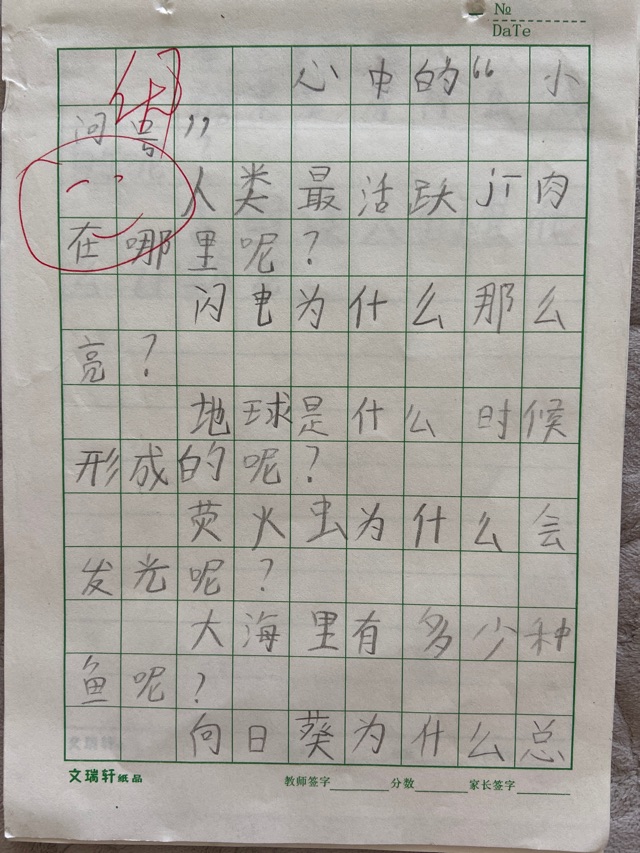 №
DaTe
心中的“小
问号”
人类最活跃jī肉
在哪里呢？
闪电为什么那么
亮？
地球是什么时候
形成的呢？
荧火虫为什么会
发光呢？
大海里有多少种
鱼呢？
向日葵为什么总
文瑞轩纸品 教师签字 分数 家长签字